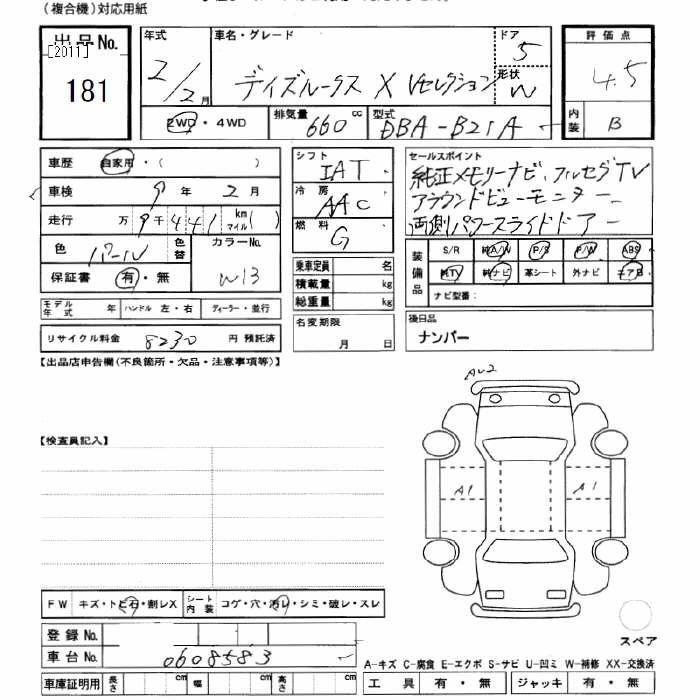 (複合機)対応用紙
出品No.
[2011]
181
年式
2/2月
車名・グレード
デイズルークス X Vセレクション
ドア
5
形状
W
評価点
4.5
内装
B
2WD・4WD
排気量
660 cc
型式
DBA-B21A
車歴 自家用・( )
車検 9年2月
走行 万9千441 km マイル( )
色 パール 色替
カラーNo.
W13
保証書 有・無
シフト
IAT
冷房
AAC
燃料
G
乗車定員 名
積載量 kg
総重量 kg
セールスポイント
純正メモリーナビ、フルセグTV
アラウンドビューモニター
両側パワースライドドアー
装備品
S/R 純A/W P/S P/W ABS
純TV 純ナビ 革シート 外ナビ エアB
ナビ型番:
モデル年式 年 ハンドル 左・右 ディーラー・並行
リサイクル料金 8230 円 預託済
名変期限
月 日
後日品
ナンバー
【出品店申告欄(不良箇所・欠品・注意事項等)】
【検査員記入】
AU2
A1
A1
FW キズ・トビ石・割レX シート内装 コゲ・穴・汚レ・シミ・破レ・スレ
登録No.
車台No. 0608583
車庫証明用 長さ cm 幅 cm 高さ cm
スペア
A-キズ C-腐食 E-エクボ S-サビ U-凹ミ W-補修 XX-交換済
工具 有・無 ジャッキ 有・無